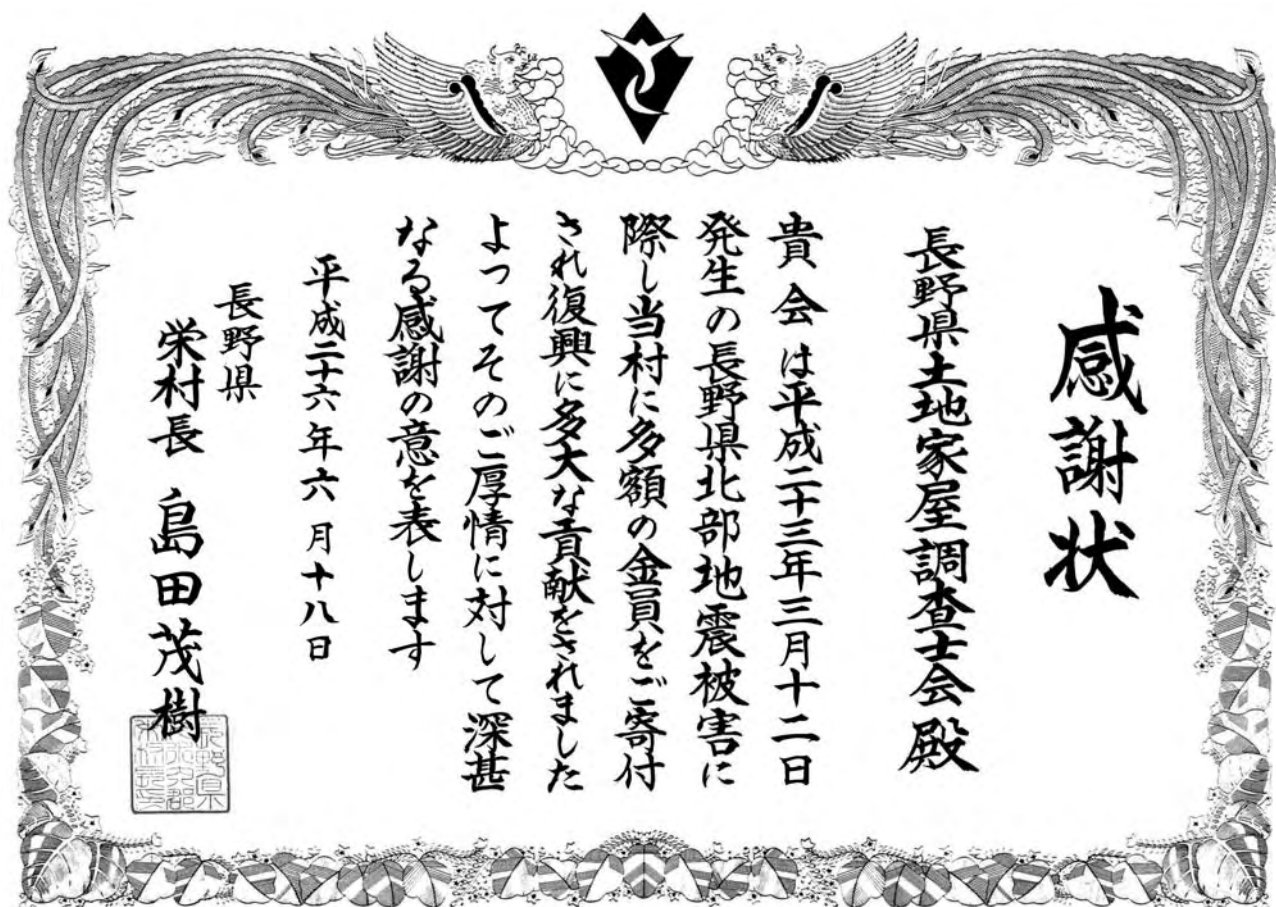 感謝状
長野県土地家屋調査士会殿
貴会は平成二十三年三月十二日
発生の長野県北部地震被害に
際し当村に多額の金員をご寄付
され復興に多大な貢献をされました
よってそのご厚情に対して深甚
なる感謝の意を表します
平成二十六年六月十八日
長野県
栄村長 島田茂樹